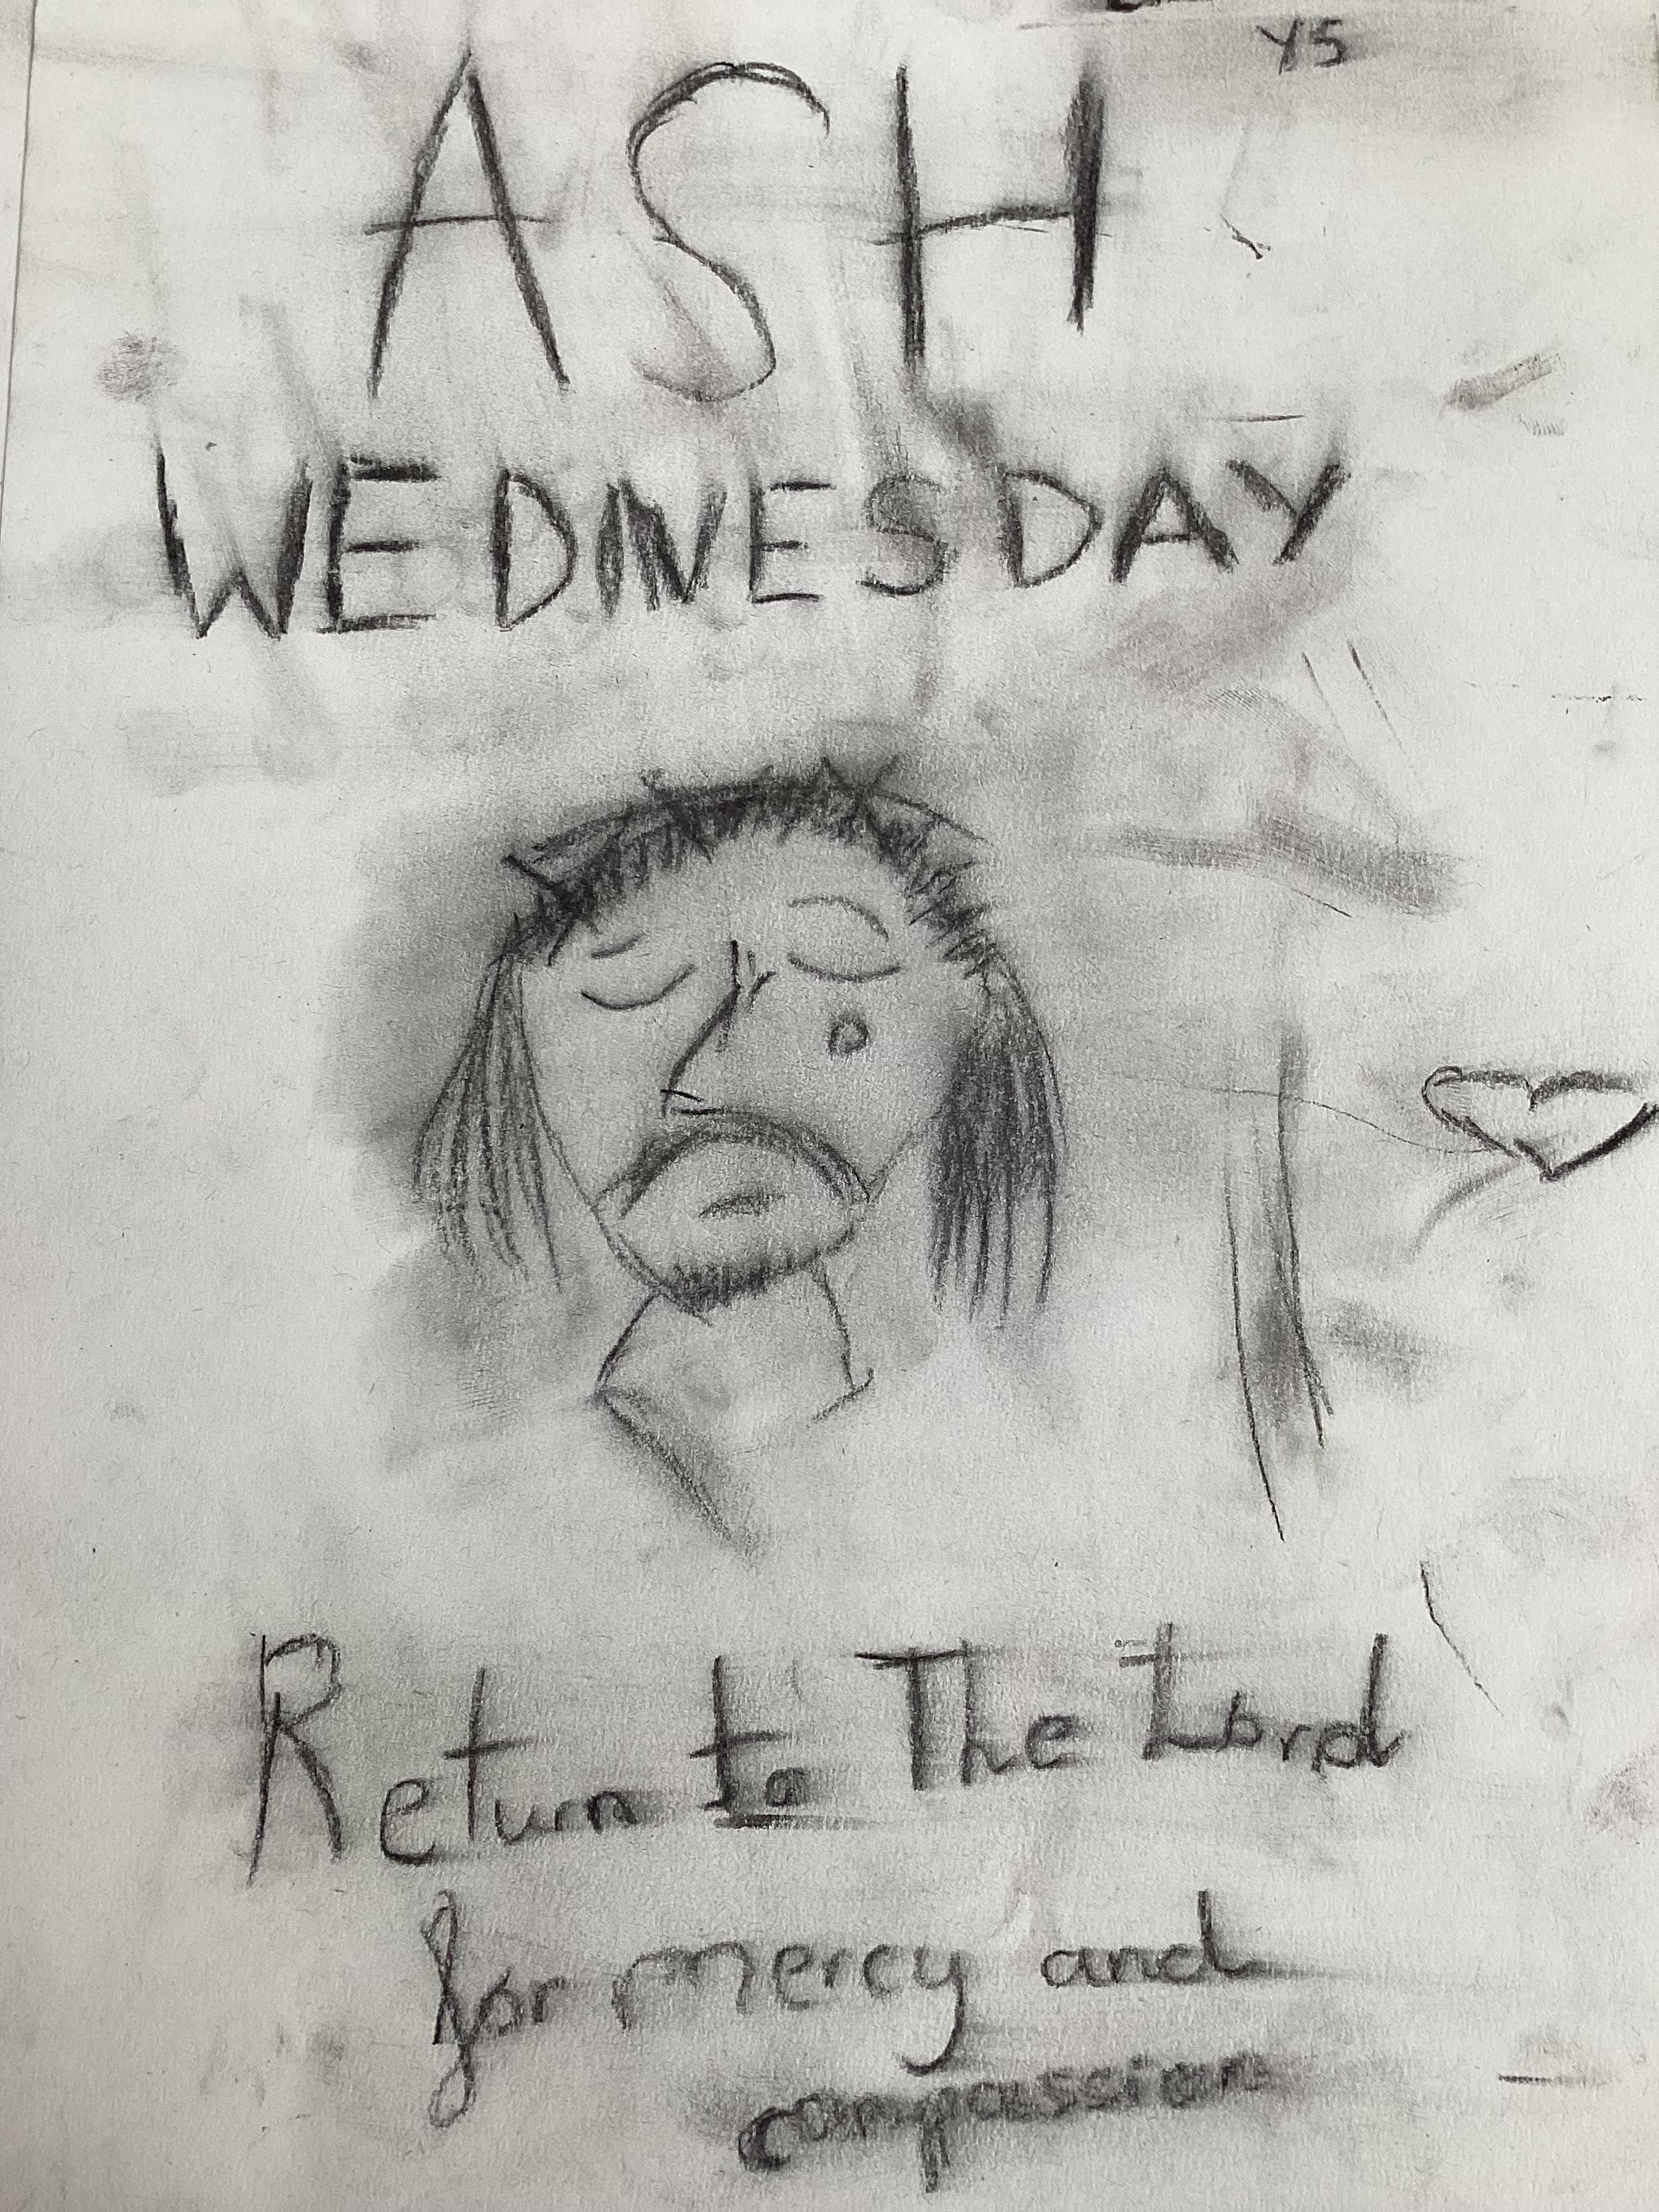 Y5
ASH
WEDNESDAY
Return to The Lord
for mercy and
compassion